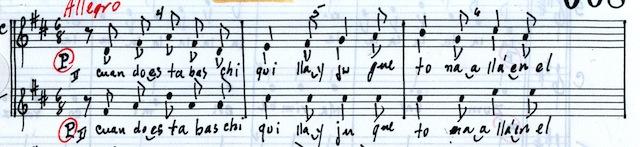 Allegro
4 5 6
P. II cuan do es ta bas chi qui lla y ju gue to na a llá en el
P. II cuan do es ta bas chi qui lla y ju gue to na a llá en el